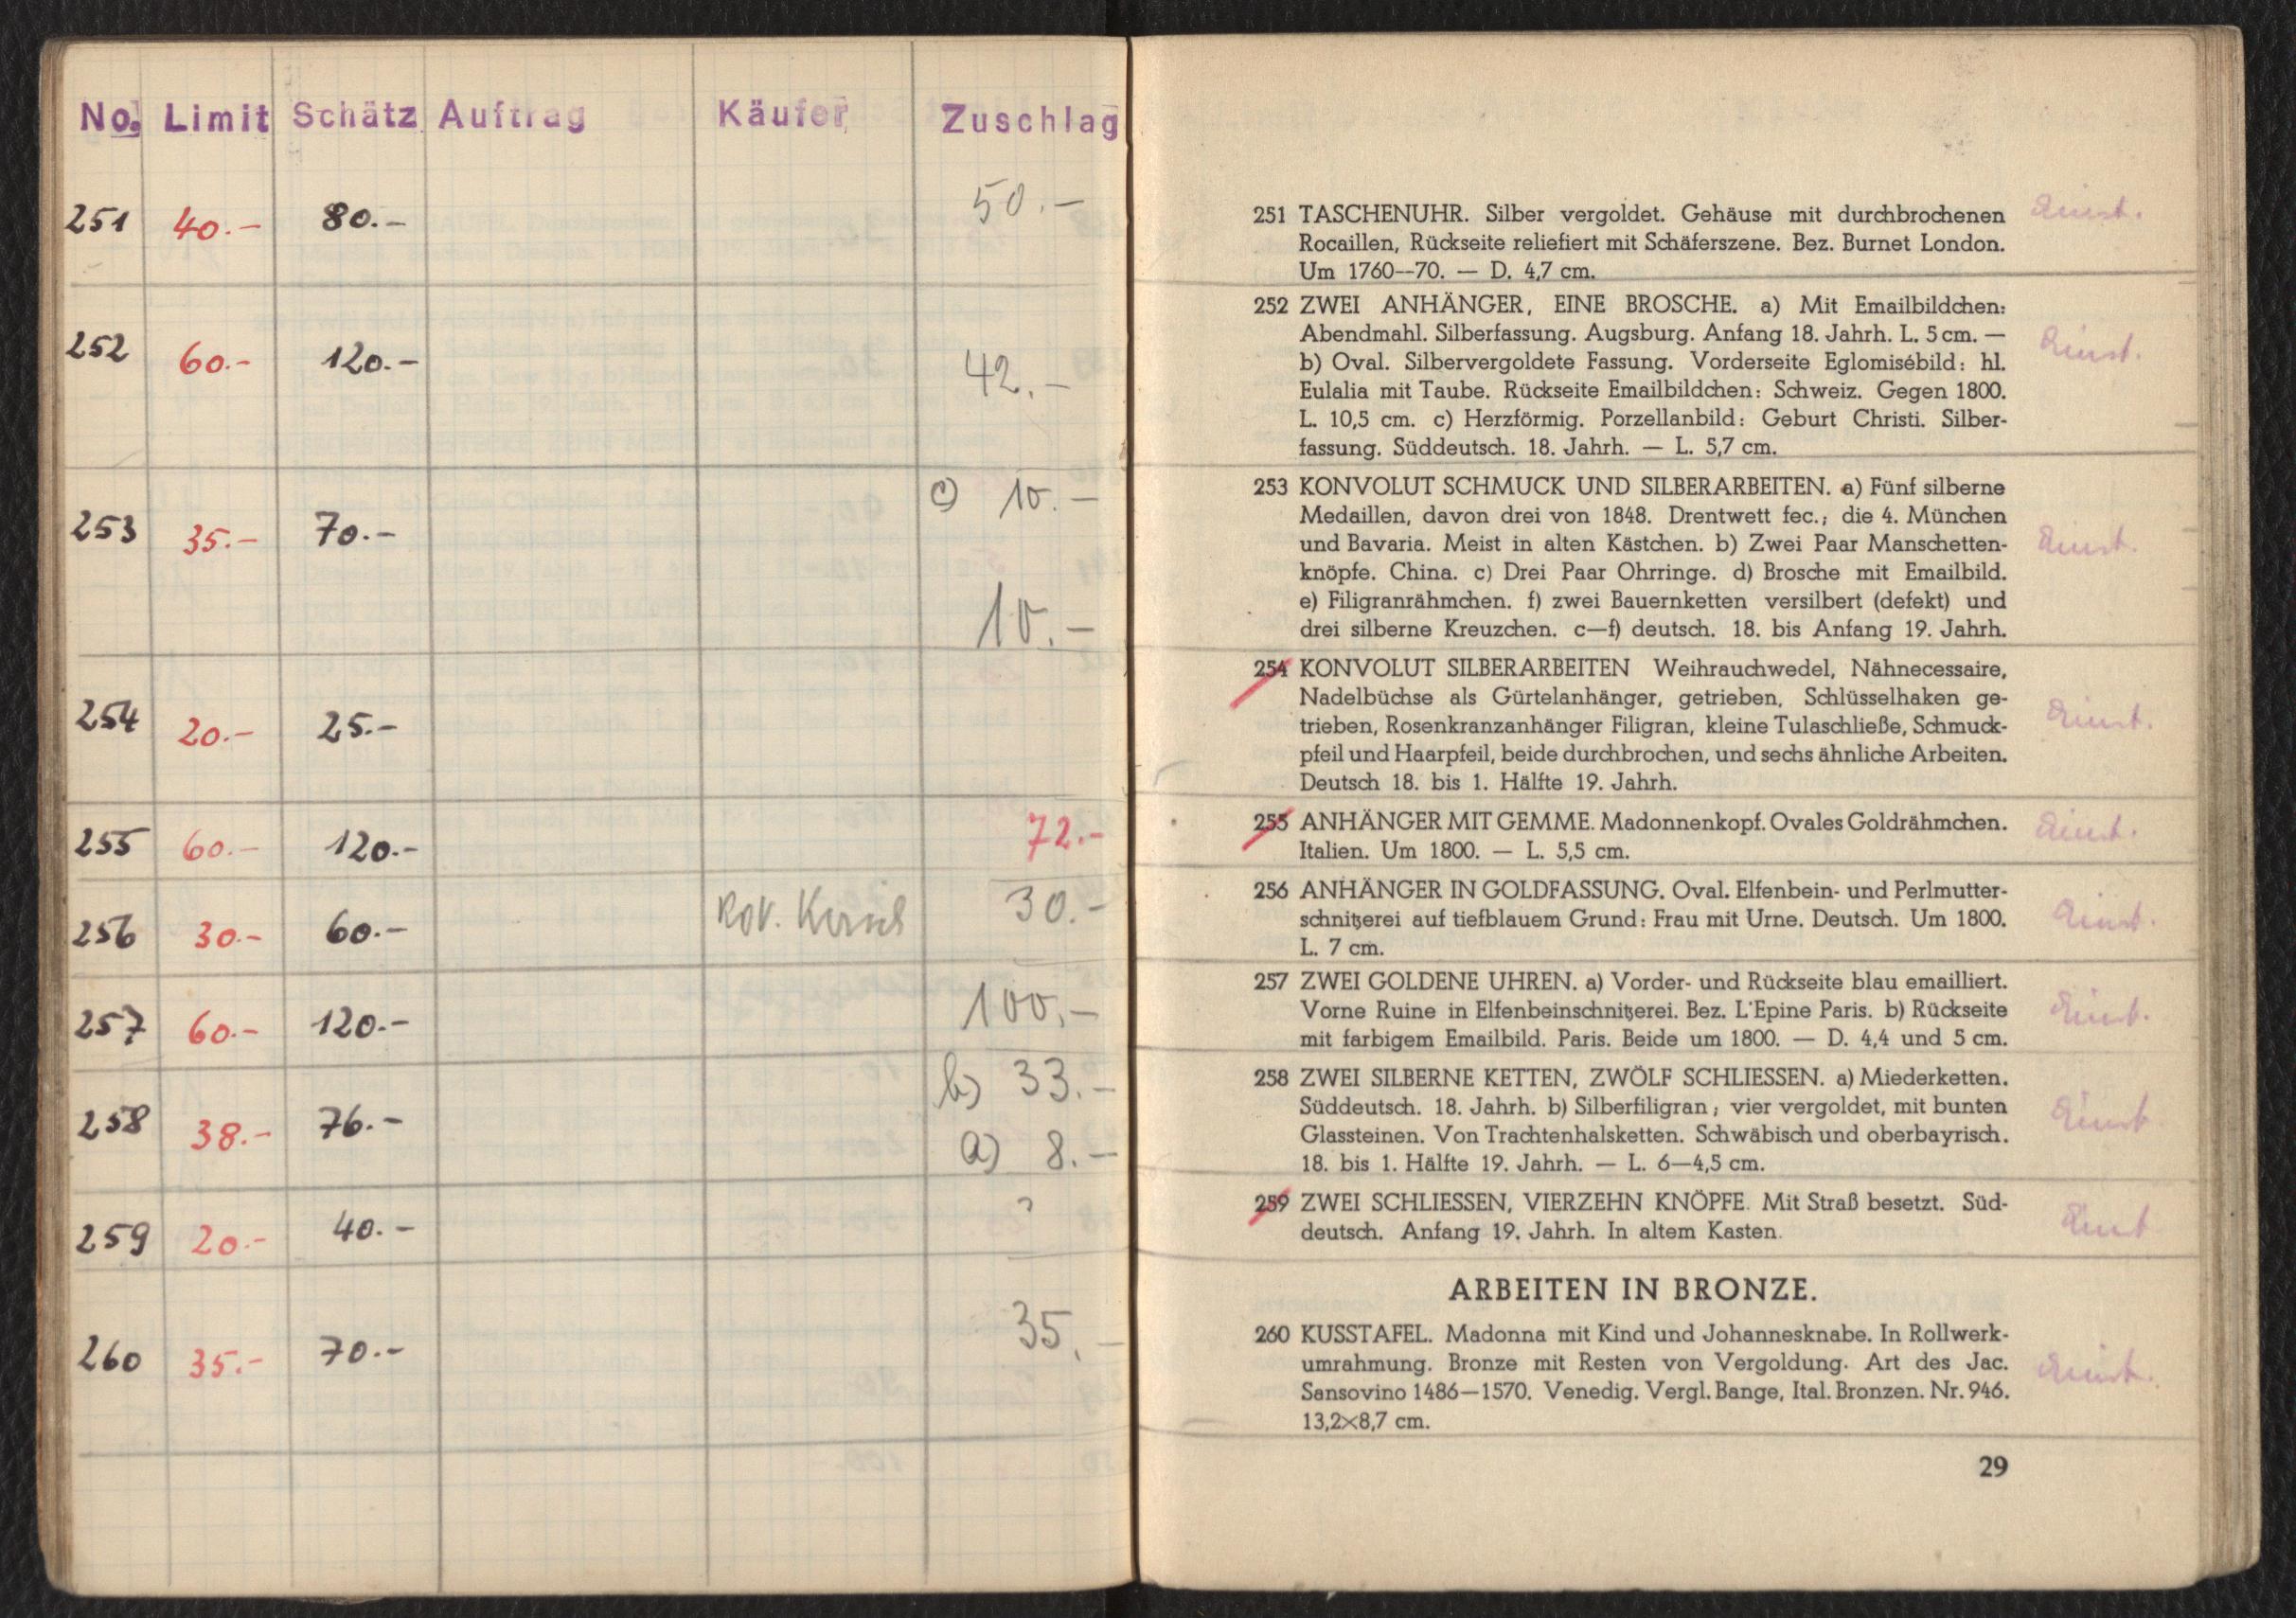 No. Limit Schätz Auftrag Käufer Zuschlag
251 40.- 80.- 50.-
252 60.- 120.- 42.-
253 35.- 70.- c) 10.-
10.-
254 20.- 25.-
255 60.- 120.- 72.-
256 30.- 60.- 30.-
257 60.- 120.- 100.-
258 38.- 76.- b) 33.-
a) 8.-
259 20.- 40.- ?
260 35.- 70.- 35.-
251 TASCHENUHR. Silber vergoldet. Gehäuse mit durchbrochenen
Rocaillen, Rückseite reliefiert mit Schäferszene. Bez. Burnet London.
Um 1760--70. — D. 4,7 cm.
252 ZWEI ANHÄNGER, EINE BROSCHE. a) Mit Emailbildchen:
Abendmahl. Silberfassung. Augsburg. Anfang 18. Jahrh. L. 5 cm. —
b) Oval. Silbervergoldete Fassung. Vorderseite Eglomisébild: hl.
Eulalia mit Taube. Rückseite Emailbildchen: Schweiz. Gegen 1800.
L. 10,5 cm. c) Herzförmig. Porzellanbild: Geburt Christi. Silber-
fassung. Süddeutsch. 18. Jahrh. — L. 5,7 cm.
253 KONVOLUT SCHMUCK UND SILBERARBEITEN. a) Fünf silberne
Medaillen, davon drei von 1848. Drentwett fec.; die 4. München
und Bavaria. Meist in alten Kästchen. b) Zwei Paar Manschetten-
knöpfe. China. c) Drei Paar Ohrringe. d) Brosche mit Emailbild.
e) Filigranrähmchen. f) zwei Bauernketten versilbert (defekt) und
drei silberne Kreuzchen. c—f) deutsch. 18. bis Anfang 19. Jahrh.
254 KONVOLUT SILBERARBEITEN Weihrauchwedel, Nähnecessaire,
Nadelbüchse als Gürtelanhänger, getrieben, Schlüsselhaken ge-
trieben, Rosenkranzanhänger Filigran, kleine Tulaschließe, Schmuck-
pfeil und Haarpfeil, beide durchbrochen, und sechs ähnliche Arbeiten.
Deutsch 18. bis 1. Hälfte 19. Jahrh.
255 ANHÄNGER MIT GEMME. Madonnenkopf. Ovales Goldrähmchen.
Italien. Um 1800. — L. 5,5 cm.
256 ANHÄNGER IN GOLDFASSUNG. Oval. Elfenbein- und Perlmutter-
schnitzerei auf tiefblauem Grund: Frau mit Urne. Deutsch. Um 1800.
L. 7 cm.
257 ZWEI GOLDENE UHREN. a) Vorder- und Rückseite blau emailliert.
Vorne Ruine in Elfenbeinschnitzerei. Bez. L'Epine Paris. b) Rückseite
mit farbigem Emailbild. Paris. Beide um 1800. — D. 4,4 und 5 cm.
258 ZWEI SILBERNE KETTEN, ZWÖLF SCHLIESSEN. a) Miederketten.
Süddeutsch. 18. Jahrh. b) Silberfiligran; vier vergoldet, mit bunten
Glassteinen. Von Trachtenhalsketten. Schwäbisch und oberbayrisch.
18. bis 1. Hälfte 19. Jahrh. — L. 6—4,5 cm.
259 ZWEI SCHLIESSEN, VIERZEHN KNÖPFE. Mit Straß besetzt. Süd-
deutsch. Anfang 19. Jahrh. In altem Kasten.
ARBEITEN IN BRONZE.
260 KUSSTAFEL. Madonna mit Kind und Johannesknabe. In Rollwerk-
umrahmung. Bronze mit Resten von Vergoldung. Art des Jac.
Sansovino 1486—1570. Venedig. Vergl. Bange, Ital. Bronzen. Nr. 946.
13,2×8,7 cm.
29